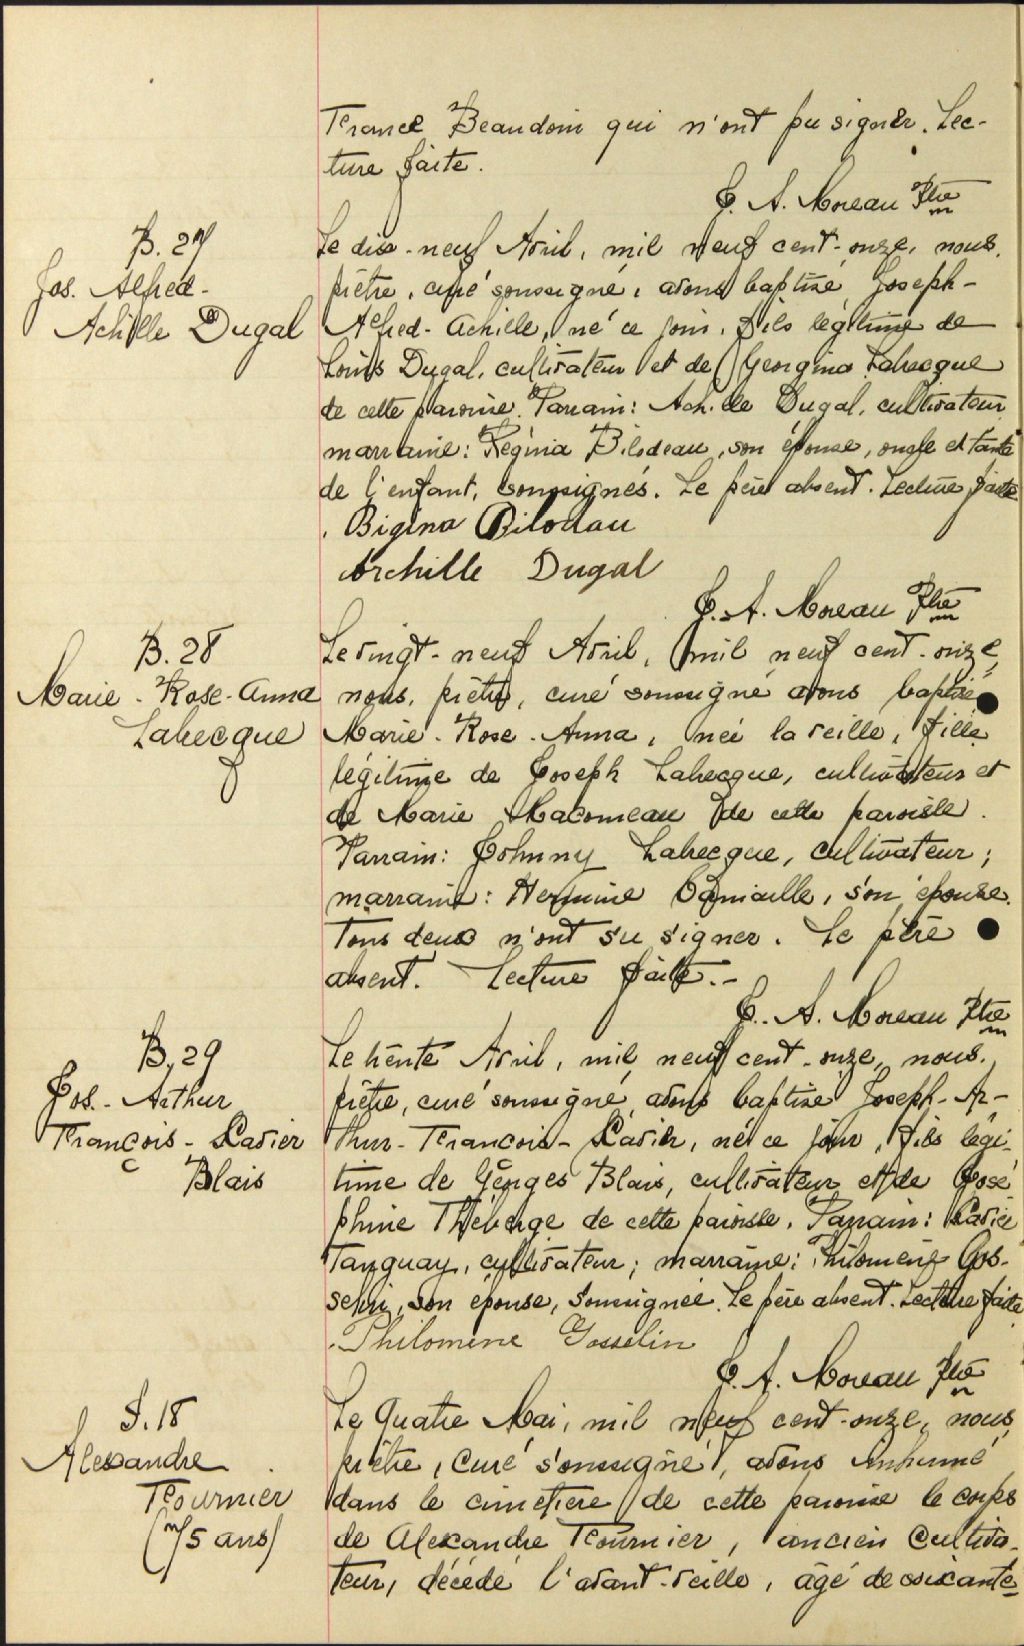 France Beaudoin qui n'ont pu signer. Lec-
ture faite.
J. A. Moreau Ptre
B. 27
Jos. Alfred-
Achille Dugal
Le dix-neuf Avril, mil neuf cent-onze, nous,
prêtre, curé soussigné, avons baptisé Joseph-
Alfred-Achille, né ce jour, fils légitime de
Louis Dugal, cultivateur et de Georgina Labecque
de cette paroisse. Parrain: Achille Dugal, cultivateur
marraine: Régina Bilodeau, son épouse, oncle et tante
de l'enfant, soussignés. Le père absent. Lecture faite
Bigina Bilodau
Archille Dugal
J. A. Moreau Ptre
B. 28
Marie-Rose-Anna
Labecque
Le vingt-neuf Avril, mil neuf cent-onze,
nous, prêtre, curé soussigné avons baptisé
Marie-Rose-Anna, née la veille, fille
légitime de Joseph Labecque, cultivateur et
de Marie Macomeau de cette paroisse.
Parrain: Johnny Labecque, cultivateur;
marraine: Hermine, son épouse.
Tous deux n'ont su signer. Le père
absent. Lecture faite.-
J. A. Moreau Ptre
B. 29
Jos.-Arthur
François-Xavier
Blais
Le trente Avril, mil neuf cent-onze, nous,
prêtre, curé soussigné, avons baptisé Joseph-Ar-
thur-François-Xavier, né ce jour, fils légi-
time de Georges Blais, cultivateur et de José
phine Théberge de cette paroisse. Parrain: Xavier
Tanguay, cultivateur; marraine: Philomène Gos-
selin, son épouse, soussignée. Le père absent. Lecture faite
Philomene Gosselin
J. A. Moreau Ptre
S. 18
Alexandre
Fournier
(75 ans)
Le quatre Mai, mil neuf cent-onze, nous,
prêtre, curé soussigné, avons inhumé
dans le cimetière de cette paroisse le corps
de Alexandre Fournier, ancien cultiva-
teur, décédé l'avant-veille, âgé de soixante-